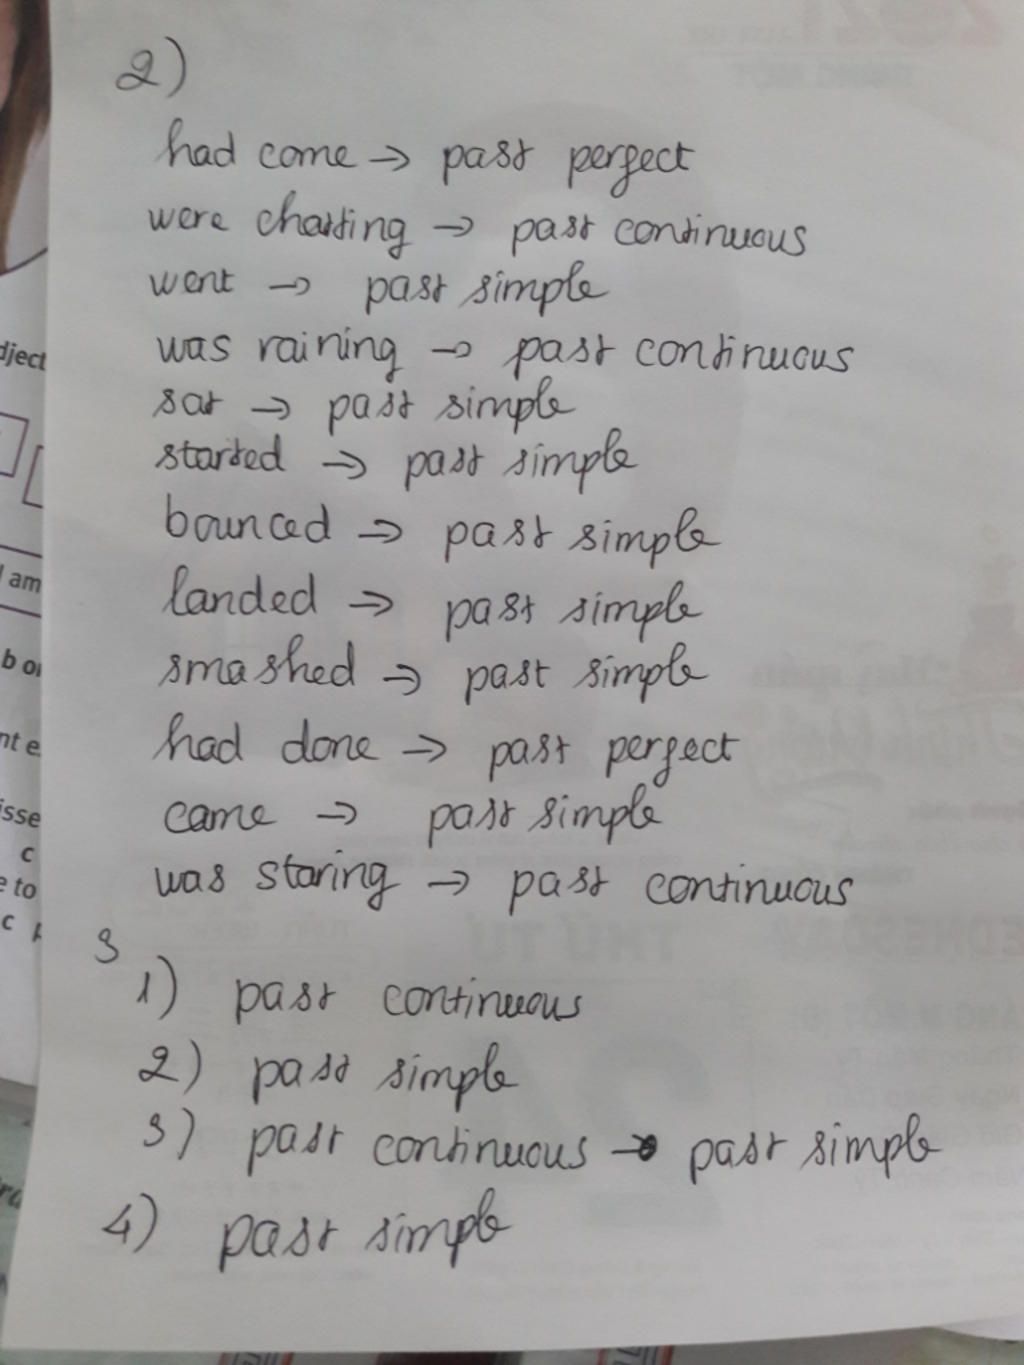 2)
had come → past perfect
were chatting → past continuous
went → past simple
was raining → past continuous
sat → past simple
started → past simple
bounced → past simple
landed → past simple
smashed → past simple
had done → past perfect
came → past simple
was staring → past continuous
3
1) past continuous
2) past simple
3) past continuous → past simple
4) past simple